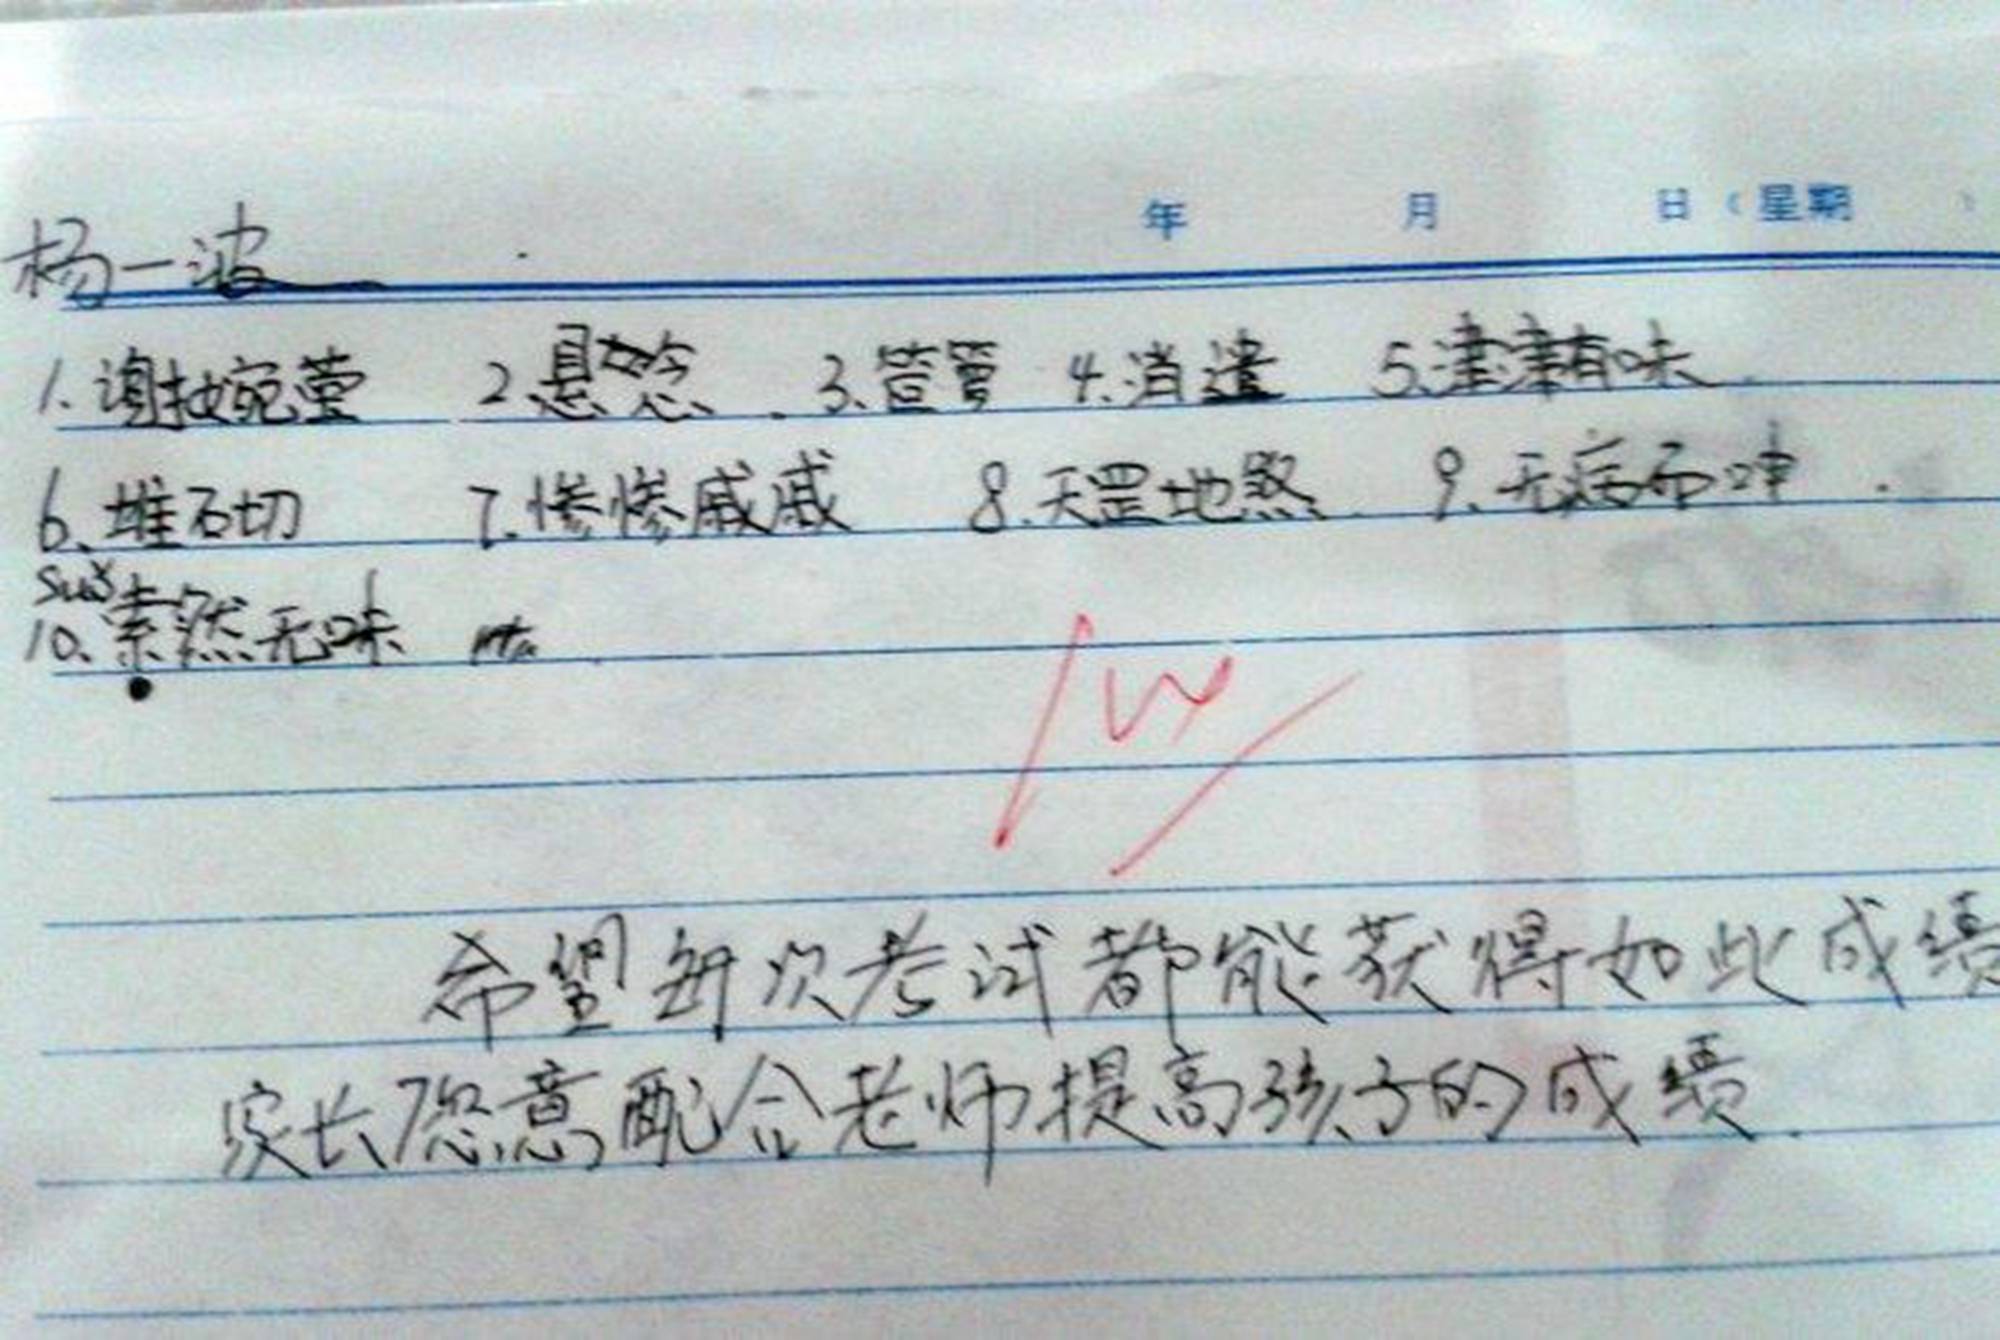 年 月 日（星期 ）
杨一波
1.谢婉莹 2.悬念 3.管管 4.消遣 5.津津有味
6.堆砌 7.惨惨戚戚 8.天罡地煞 9.无病而呻
suǒ
10.索然无味
希望每次考试都能获得如此成绩
家长愿意配合老师提高孩子的成绩.